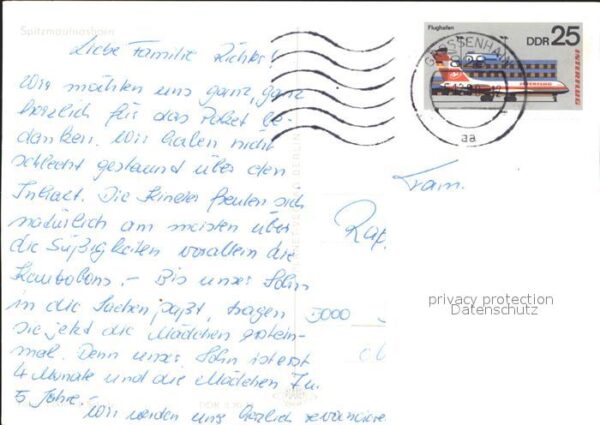 Spitzmaulnashorn
Liebe Familie
Wir möchten uns ganz, ganz
herzlich für das Paket be-
danken. Wir haben nicht
schlecht gestaunt über den
Inhalt. Die Kinder freuten sich
natürlich am meisten über
die Süßigkeiten vorallem die
Kaubobons. - Bis unser Sohn
in die Sachen paßt, tragen
sie jetzt die Mädchen erstein-
mal. Denn unser Sohn ist erst
4 Monate und die Mädchen 7 u.
5 Jahre. -
Wir werden uns herzlich revanchieren
Flughafen
DDR 25
INTERFLUG
GROSSENHAIN
828
aa
Fam.
3000
privacy protection
Datenschutz